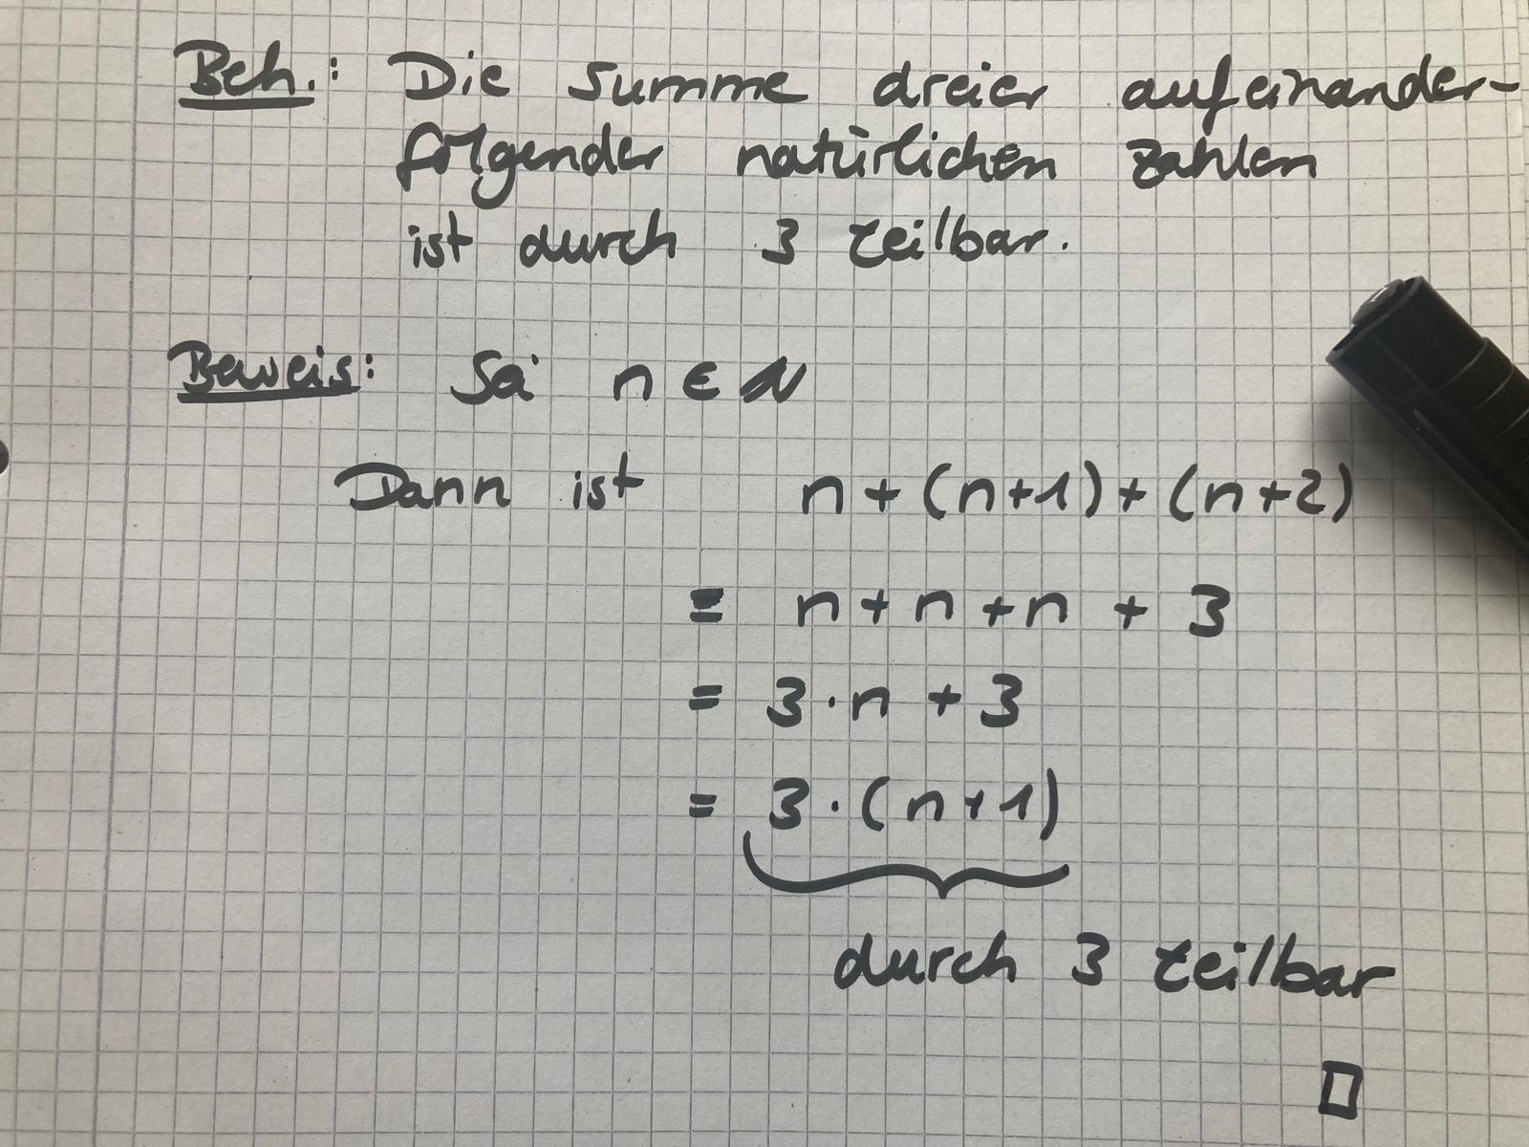 Beh.: Die Summe dreier aufeinander-
folgender natürlichen Zahlen
ist durch 3 teilbar.
Beweis: Sei n ∈ ℕ
Dann ist n + (n+1) + (n+2)
= n + n + n + 3
= 3 · n + 3
= 3 · (n+1)
durch 3 teilbar
□